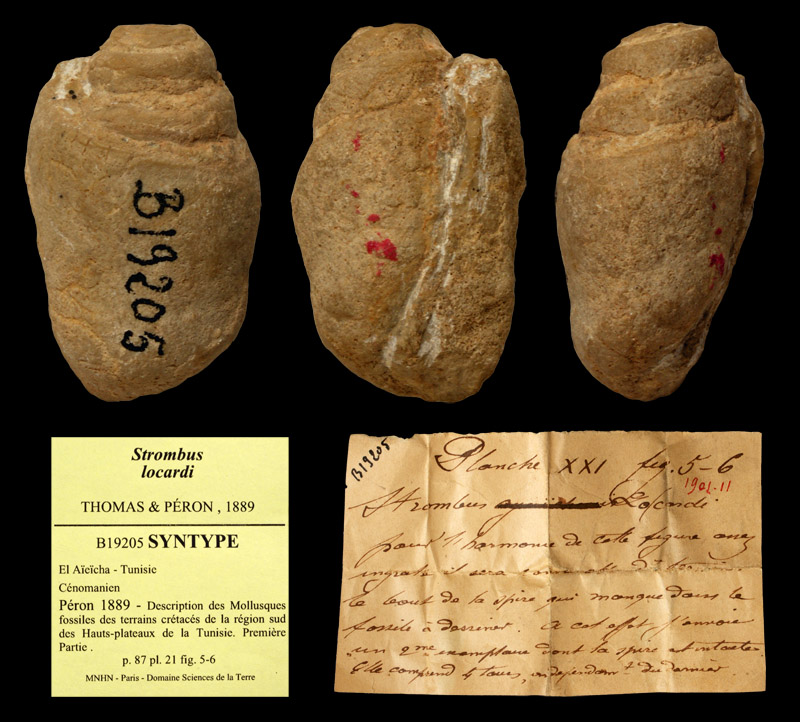 B19205
Strombus
locardi
THOMAS & PÉRON , 1889
B19205 SYNTYPE
El Aïeïcha - Tunisie
Cénomanien
Péron 1889 - Description des Mollusques
fossiles des terrains crétacés de la région sud
des Hauts-plateaux de la Tunisie. Première
Partie .
p. 87 pl. 21 fig. 5-6
MNHN - Paris - Domaine Sciences de la Terre
B19205
Planche XXI fig. 5-6
1902-11
Strombus Locardi
pour l'harmonie de cette figure assez
ingrate il sera de
le bout de la spire qui manque dans le
fossile à dessiner. A cet effet j'envoie
un 2me exemplaire dont la spire est intacte.
Elle comprend 4 tours, independamt du dernier.